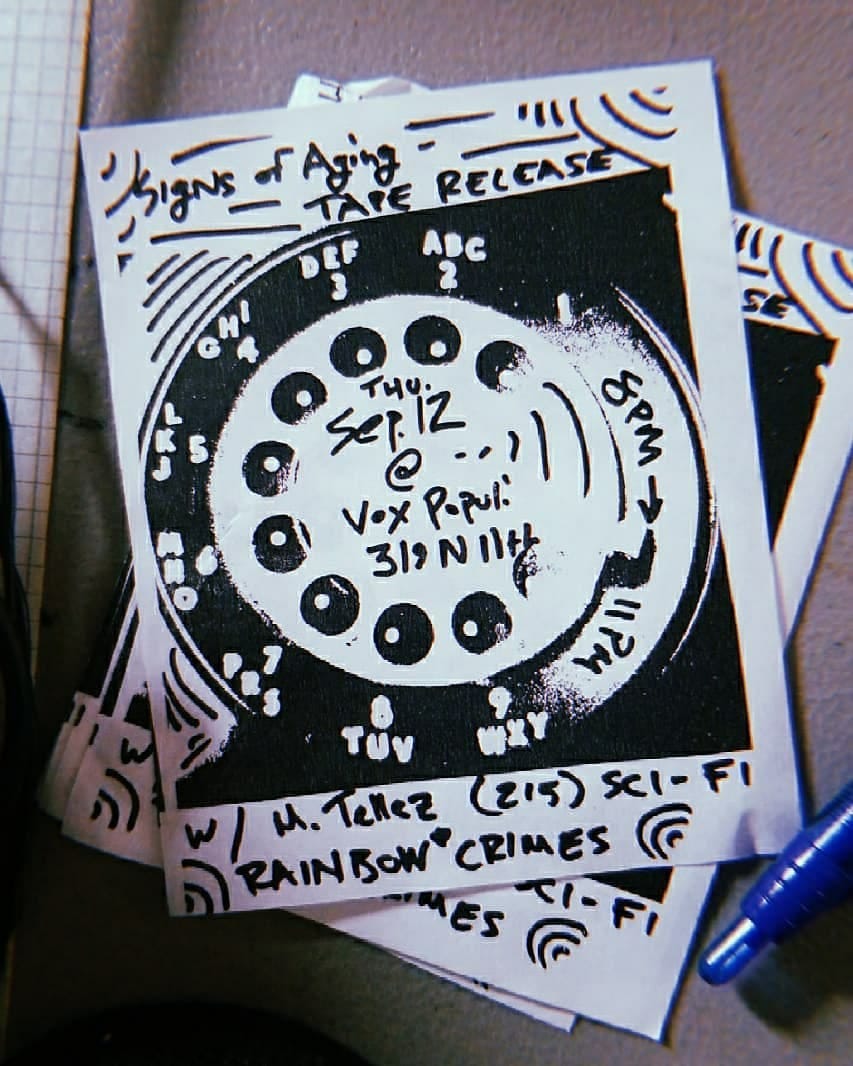 Signs of Aging -
TAPE RELEASE
ABC
2
DEF
3
GHI
4
L
K
J
5
M
N
O
6
7
PRS
8
TUV
9
WXY
1
THU.
Sep. 12
@
Vox Populi
319 N 11th
8PM →
11PM
W/ M. Tellez (215) SCI-FI
RAINBOW CRIMES
SE
W
SCI-FI
IMES